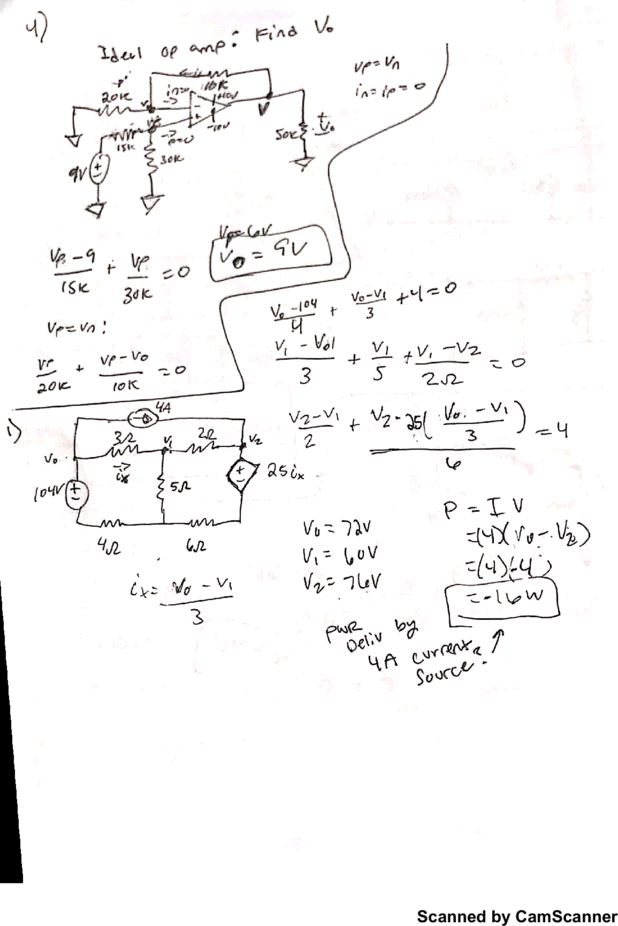 4)
Ideal op amp: Find Vo
Vp=Vn
in=ip=0
20K
10K
15K
30K
50K
9V
Vp=6V
Vo = 9V
Vp-9/15K + Vp/30K = 0
Vp=Vn:
Vp/20K + Vp-Vo/10K = 0
Vo-104/4 + Vo-V1/3 + 4 = 0
V1-Vo/3 + V1/5 + V1-V2/2Ω = 0
V2-V1/2 + V2-25(Vo-V1/3)/6 = 4
1)
4A
3Ω
V1
2Ω
V2
Vo
ix
5Ω
25ix
104V
4Ω
6Ω
ix = Vo-V1/3
Vo = 72V
V1 = 60V
V2 = 76V
P = I V
=(4)(Vo-V2)
=(4)(-4)
=-16W
PWR
Deliv by
4A current
Source
Scanned by CamScanner